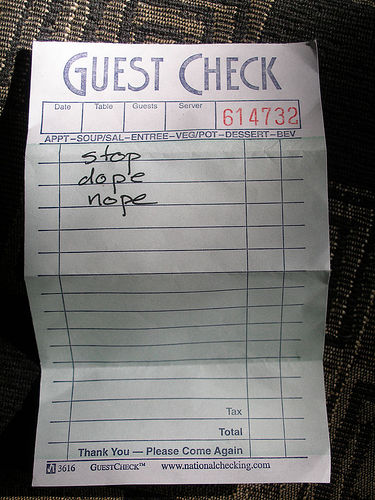 GUEST CHECK
Date Table Guests Server
614732
APPT-SOUP/SAL-ENTREE-VEG/POT-DESSERT-BEV
stop
dope
nope
Tax
Total
Thank You — Please Come Again
3616 GUESTCHECK™ www.nationalchecking.com